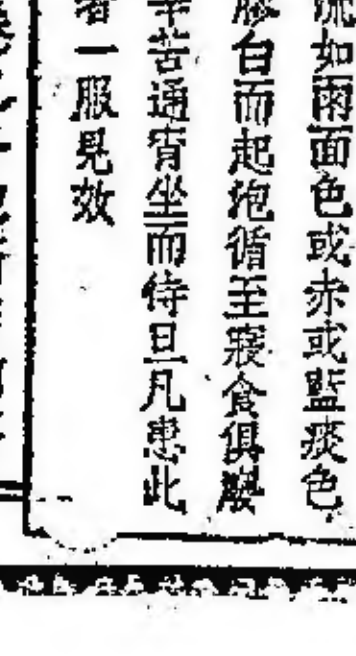 流如雨面色或赤或藍痰色
膠白而起泡循至寢食俱廢
辛苦通宵坐而待旦凡患此
者一服見效